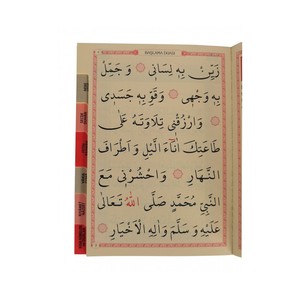 BAĞIŞLAMA DUASI
زَيِّنْ بِهِ لِسَانِى ۞ وَ جَمِّلْ
بِهِ وَجْهِى ۞ وَقَوِّ بِهِ جَسَدِى
۞ وَارْزُقْنِى تِلَاوَتَهُ عَلٰى
طَاعَتِكَ اٰنَٓاءَ الَّيْلِ وَ اَطْرَافَ
النَّهَارِ ۞ وَاحْشُرْنِى مَعَ
النَّبِيِّ مُحَمَّدٍ صَلَّى اللّٰهُ تَعَالٰى
عَلَيْهِ وَ سَلَّمَ وَاٰلِهِ الْاَخْيَارِ